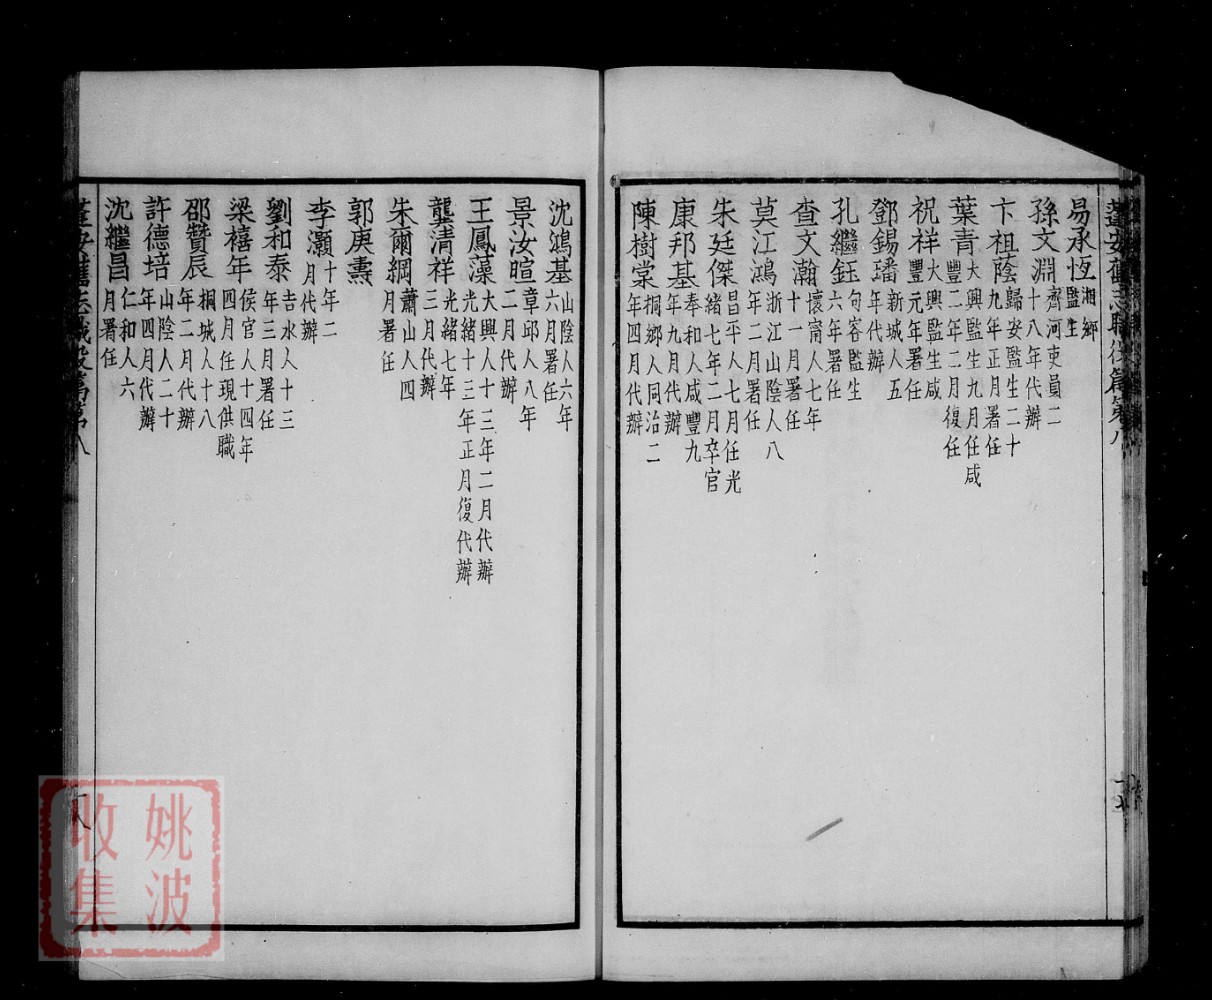 易承恆湘鄉監生
孫文淵齊河吏員二十八年代辦
卞祖蔭歸安監生二十九年正月署任
葉青大興監生九月任咸豐二年二月復任
祝祥大興監生咸豐元年署任
鄧錫璠新城人五年代辦
孔繼鈺句容監生六年署任
查文瀚懷甯人七年十一月署任
莫江鴻浙江山陰人八年二月署任
朱廷傑昌平人七月任光緒七年二月卒官
康邦基奉和人咸豐九年九月代辦
陳樹棠桐鄉人同治二年四月代辦
沈鴻基山陰人六年六月署任
景汝暄章邱人八年二月代辦
王鳳藻大興人十三年二月代辦光緒十三年正月復代辦
龔清祥光緒七年三月代辦
朱爾綱蕭山人四月署任
郭庚燾
李灝十年二月代辦
劉和泰吉水人十三年三月署任
梁禧年侯官人十四年四月任現供職
邵贊辰桐城人十八年二月代辦
許德培山陰人二十年四月代辦
沈繼昌仁和人六月署任
姚波
收集